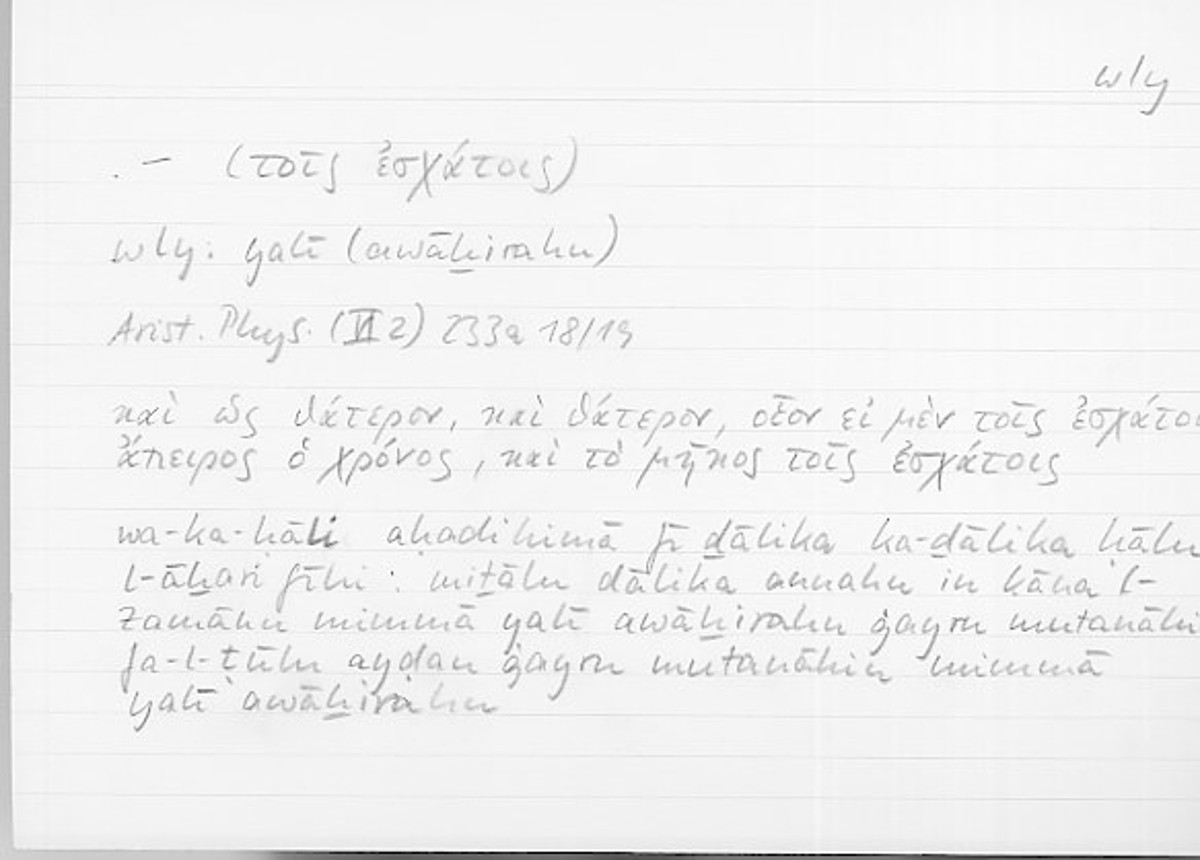 wly
. – (τοῖς ἐσχάτοις)
wly: yalī (awāḫirahu)
Arist. Phys. (VI 2) 233a 18/19
καὶ ὡς θάτερον, καὶ θάτερον, οἷον εἰ μὲν τοῖς ἐσχάτοι
ἄπειρος ὁ χρόνος, καὶ τὸ μῆκος τοῖς ἐσχάτοις
wa-ka-ḥāli aḥadihimā fī ḏālika ka-ḏālika ḥālu
l-āḫari fīhi: miṯālu dālika annahu in kāna l-
zamānu mimmā yalī awāḫirahu ġayru mutanāhi
fa-l-ṭūlu ayḍan ġayru mutanāhin mimmā
yalī awāḫirahu